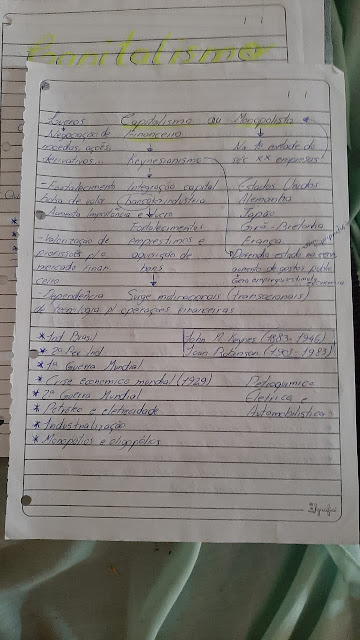 Capitalismo
Lucros Capitalismo ou Monopolista
- Negociação de Financeiro
moedas, ações Na 1ª metade do
derivativos... Keynesianismo séc XX empresas
- Fortalecimento Integração capital Estados Unidos
bolsa de valor bancário indústria Alemanha
- Aumenta importância e lucro Japão
Fortalecimentos Grã-Bretanha
- Valorização de empréstimos e França
profissões p/ o aquisição de Defendia estado na
mercado finan bens aumento de gastos públic
ceiro Gera emprego estimula economia
Dependência Surge multinacionais (transnacionais)
de tecnologia p/ operações financeiras
* Ind Brasil John M. Keynes (1883-1946)
* 2ª Rev Ind Joan Robinson (1903-1983)
* 1ª Guerra Mundial
* Crise economica mundial (1929) Petroquímica
* 2ª Guerra Mundial Elétrica e
* Petróleo e eletricidade Automobilística
* Industrialização
* Monopólios e oligopólios